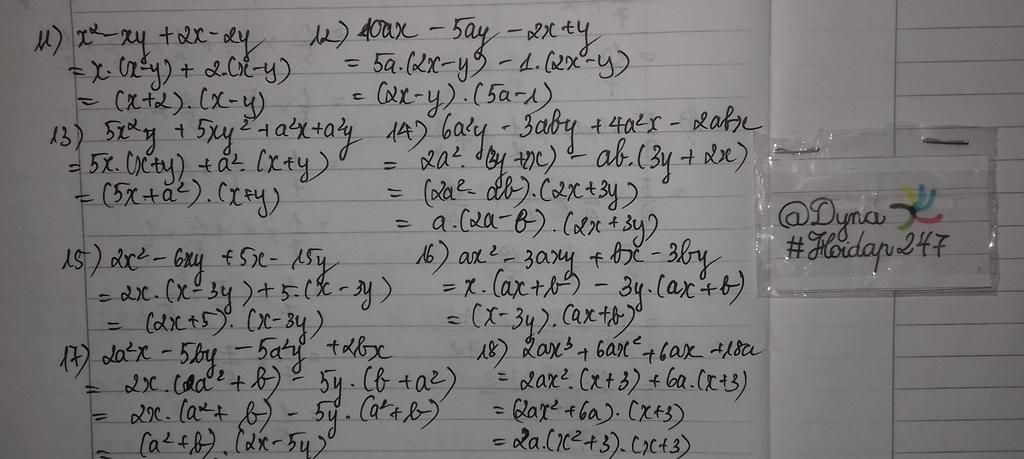 11) x² - xy + 2x - 2y
= x.(x-y) + 2.(x-y)
= (x+2).(x-y)
12) 10ax - 5ay - 2x + y
= 5a.(2x-y) - 1.(2x-y)
= (2x-y).(5a-1)
13) 5x²y + 5xy² + a²x + a²y
= 5x.(x+y) + a².(x+y)
= (5x+a²).(x+y)
14) 6a²y - 3aby + 4a²x - 2abx
= 2a².(3y+2x) - ab.(3y+2x)
= (2a²-ab).(2x+3y)
= a.(2a-b).(2x+3y)
15) 2x² - 6xy + 5x - 15y
= 2x.(x-3y) + 5.(x-3y)
= (2x+5).(x-3y)
16) ax² - 3axy + bx - 3by
= x.(ax+b) - 3y.(ax+b)
= (x-3y).(ax+b)
17) 2a²x - 5by - 5a²y + 2bx
= 2x.(2a²+b) - 5y.(b+a²)
= 2x.(a²+b) - 5y.(a²+b)
= (a²+b).(2x-5y)
18) 2ax³ + 6ax² + 6ax + 18a
= 2ax².(x+3) + 6a.(x+3)
= (2ax²+6a).(x+3)
= 2a.(x²+3).(x+3)
@Dyna
#Hoidap247